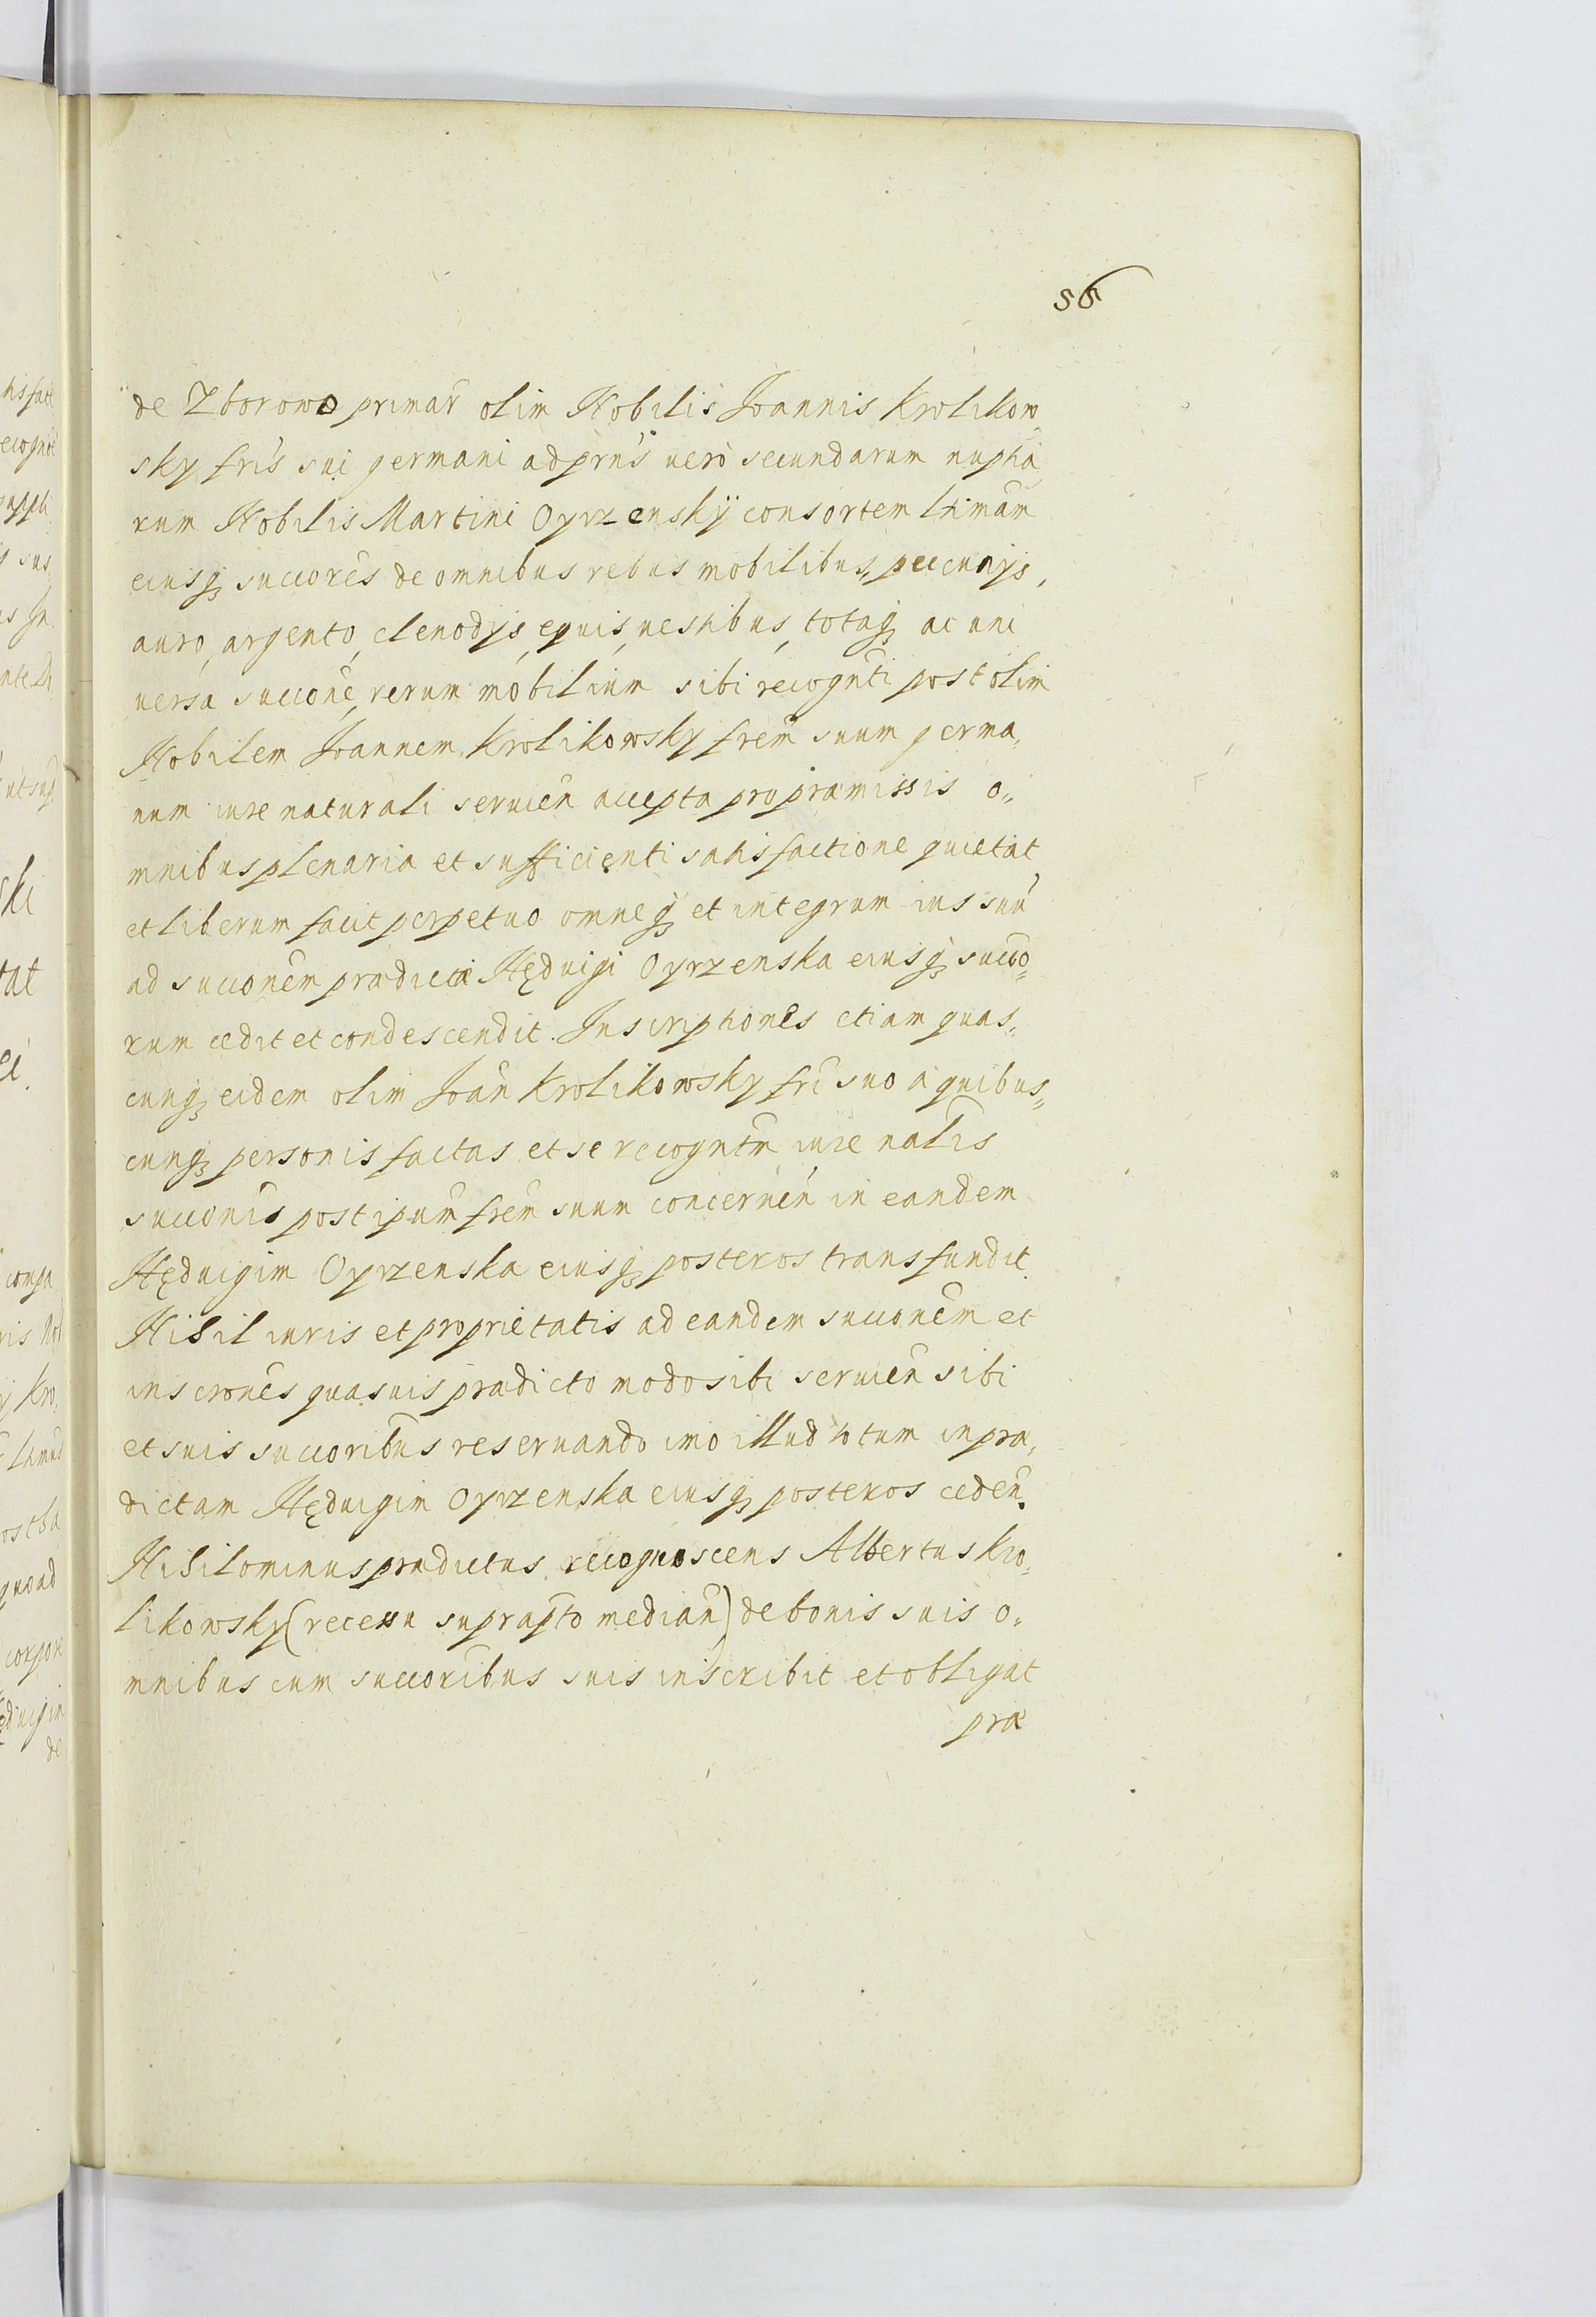 56
de Zborowo primar̃ olim Nobilis Joannis Krolikow„
sky frĩs sui germani ad prñs uerò secundarum nuptia„
rum Nobilis Martini Oyrzenskÿ consortem lt̃imam
eiusq̃ succorẽs de omnibus rebus mobilibus, peccunijs,
auro, argento, clenodijs, equis, uestibus, totaq̃ ac uni
uersa succonẽ, rerum mobilium sibi recogntĩ post olim
Nobilem Joannem Krolikowsky frẽm suum germa„
num iure naturali seruieñ accepta pro præmissis o„
mnibus plenaria et sufficienti satisfactione quietat
et liberum facit perpetuo omneq̃ et integrum ius suũ
ad succonẽm prædictæ Hęduigi Oyrzenska eiusq̃ succo„
rum cedit et condescendit. Inscriptiones etiam quas„
cunq̃ eidem olim Joañ Krolikowsky frĩ suo à quibus„
cunq̃ personis factas et se recogntm̃ iure nalĩs
succonĩs post ipum̃ frẽm suum concerneñ in eandem
Hęduigim Oyrzenska eiusq̃ posteros transfundit.
Nihil iuris et proprietatis ad eandem succonẽm et
inscronẽs quasuis prædicto modo sibi seruieñ sibi
et suis succoribus̃ reseruando imo illud totum in præ„
dictam Hęduigim Oyrzenska eiusq̃ posteros cedeñ.
Nihilominus prædictus recognoscens Albertus Kro„
likowsky (recessu supraptõ mediañ) de bonis suis o„
mnibus cum succoribus̃ suis inscribit et obligat
præ